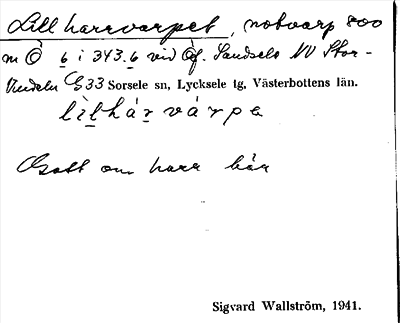 Lill harrvarpet, notvarp 800
m Ö 6 i 343.6 vid Öf. Sandsele NV Stor-
Vindeln C33 Sorsele sn, Lycksele tg, Västerbottens län.
Gott om harr här
Sigvard Wallström, 1941.